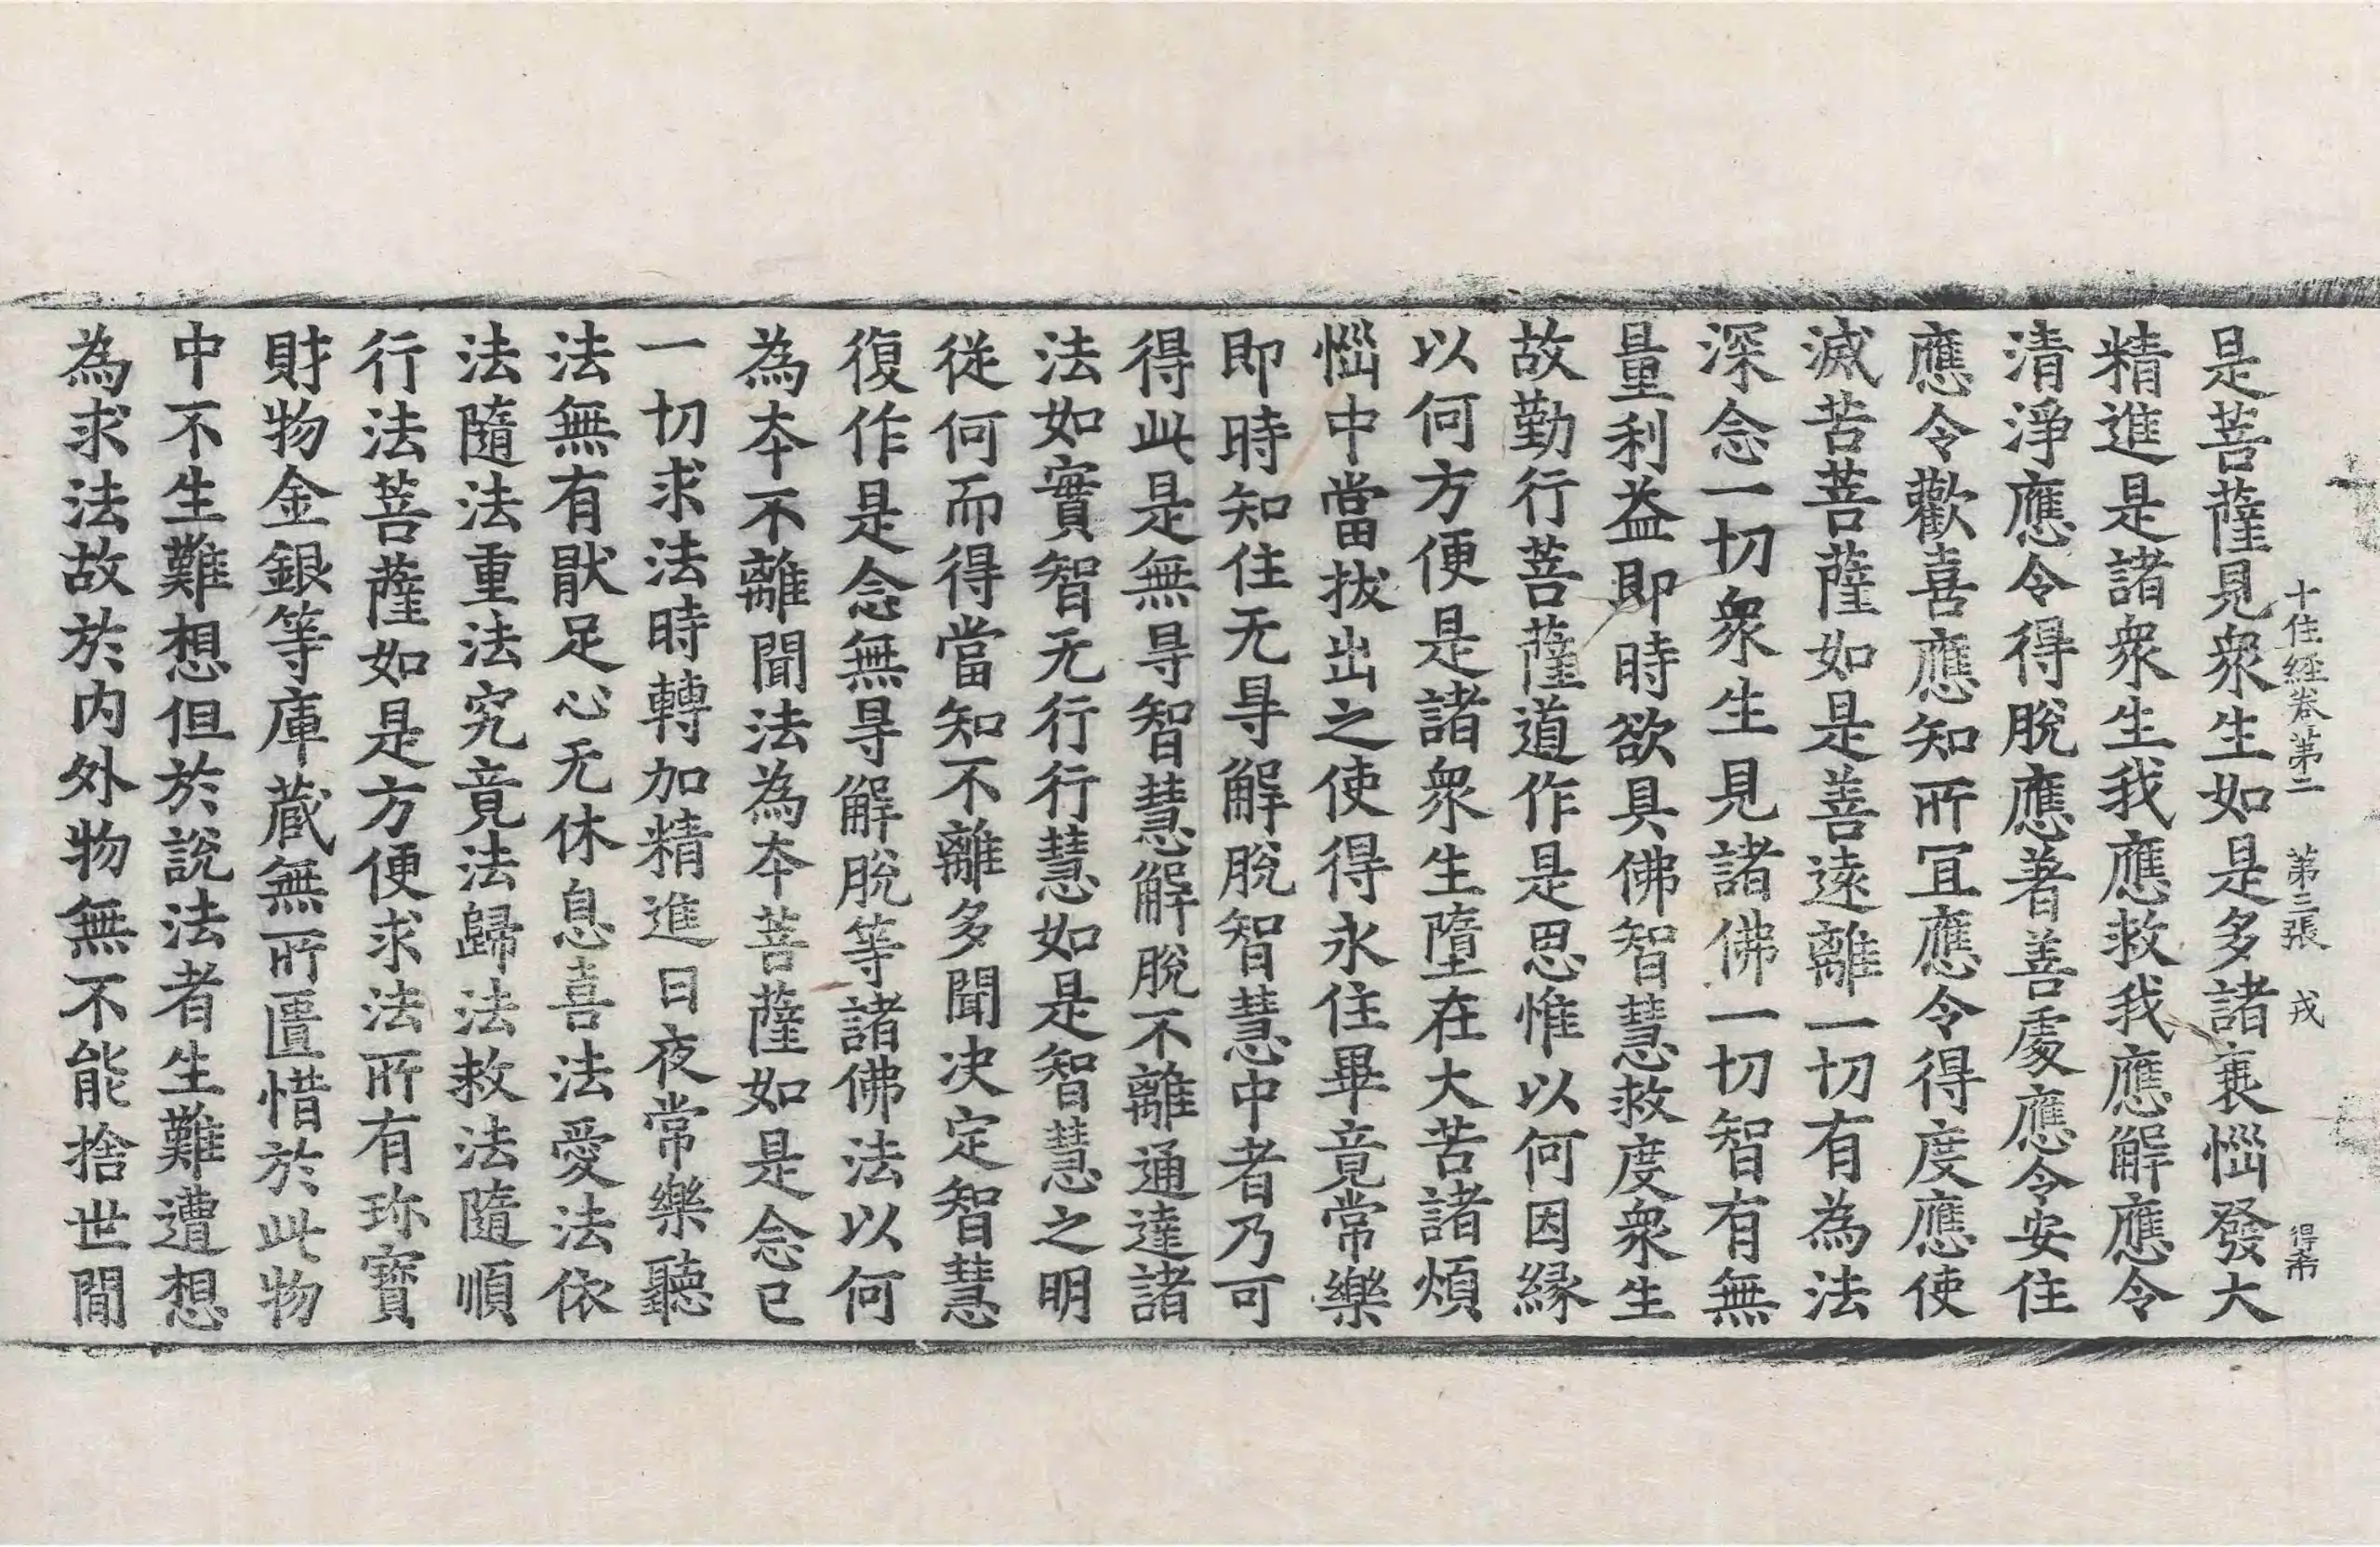 十住經卷第二 第三張 戎 得希
是菩薩見衆生如是多諸衰惱發大
精進是諸衆生我應救我應解應令
清淨應令得脫應著善處應令安住
應令歡喜應知所冝應令得度應使
滅苦菩薩如是善遠離一切有為法
深念一切衆生見諸佛一切智有無
量利益即時欲具佛智慧救度衆生
故勤行菩薩道作是思惟以何因縁
以何方便是諸衆生墮在大苦諸煩
惱中當拔出之使得永住畢竟常樂
即時知住无㝵解脫智慧中者乃可
得此是無㝵智慧解脫不離通達諸
法如實智无行行慧如是智慧之明
從何而得當知不離多聞決定智慧
復作是念無㝵解脫等諸佛法以何
為夲不離聞法為夲菩薩如是念已
一切求法時轉加精進日夜常樂聽
法無有猒足心无休息喜法愛法依
法隨法重法究竟法歸法救法隨順
行法菩薩如是方便求法所有珎寶
財物金銀等庫蔵無所匱惜於此物
中不生難想但於說法者生難遭想
為求法故於内外物無不能捨世間